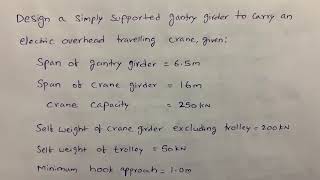 Design a simply supported gantry girder to carry an
electric overhead travelling crane, given:
Span of gantry girder = 6.5m
Span of crane girder = 16m
crane capacity = 250kN
Self weight of crane girder excluding trolley = 200kN
Self weight of trolley = 50kN
Minimum hook approach = 1.0m